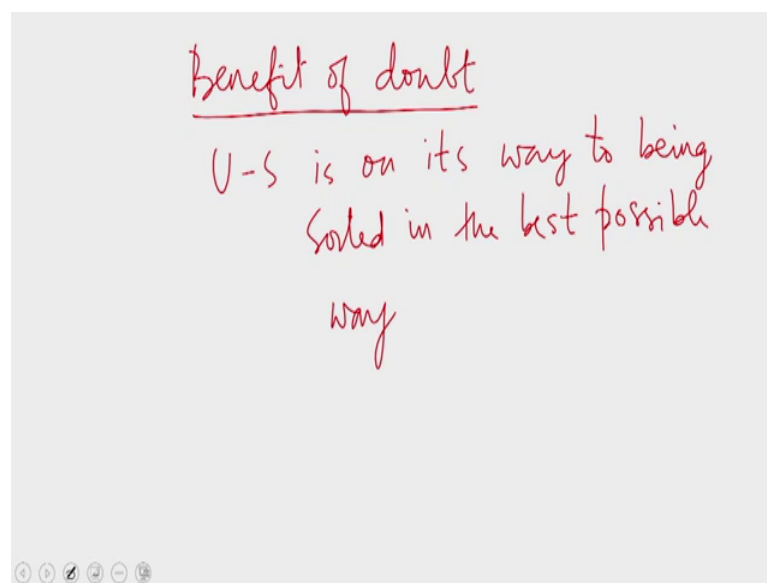 Benefit of doubt
U-S is on its way to being
Sorted in the best possible
way